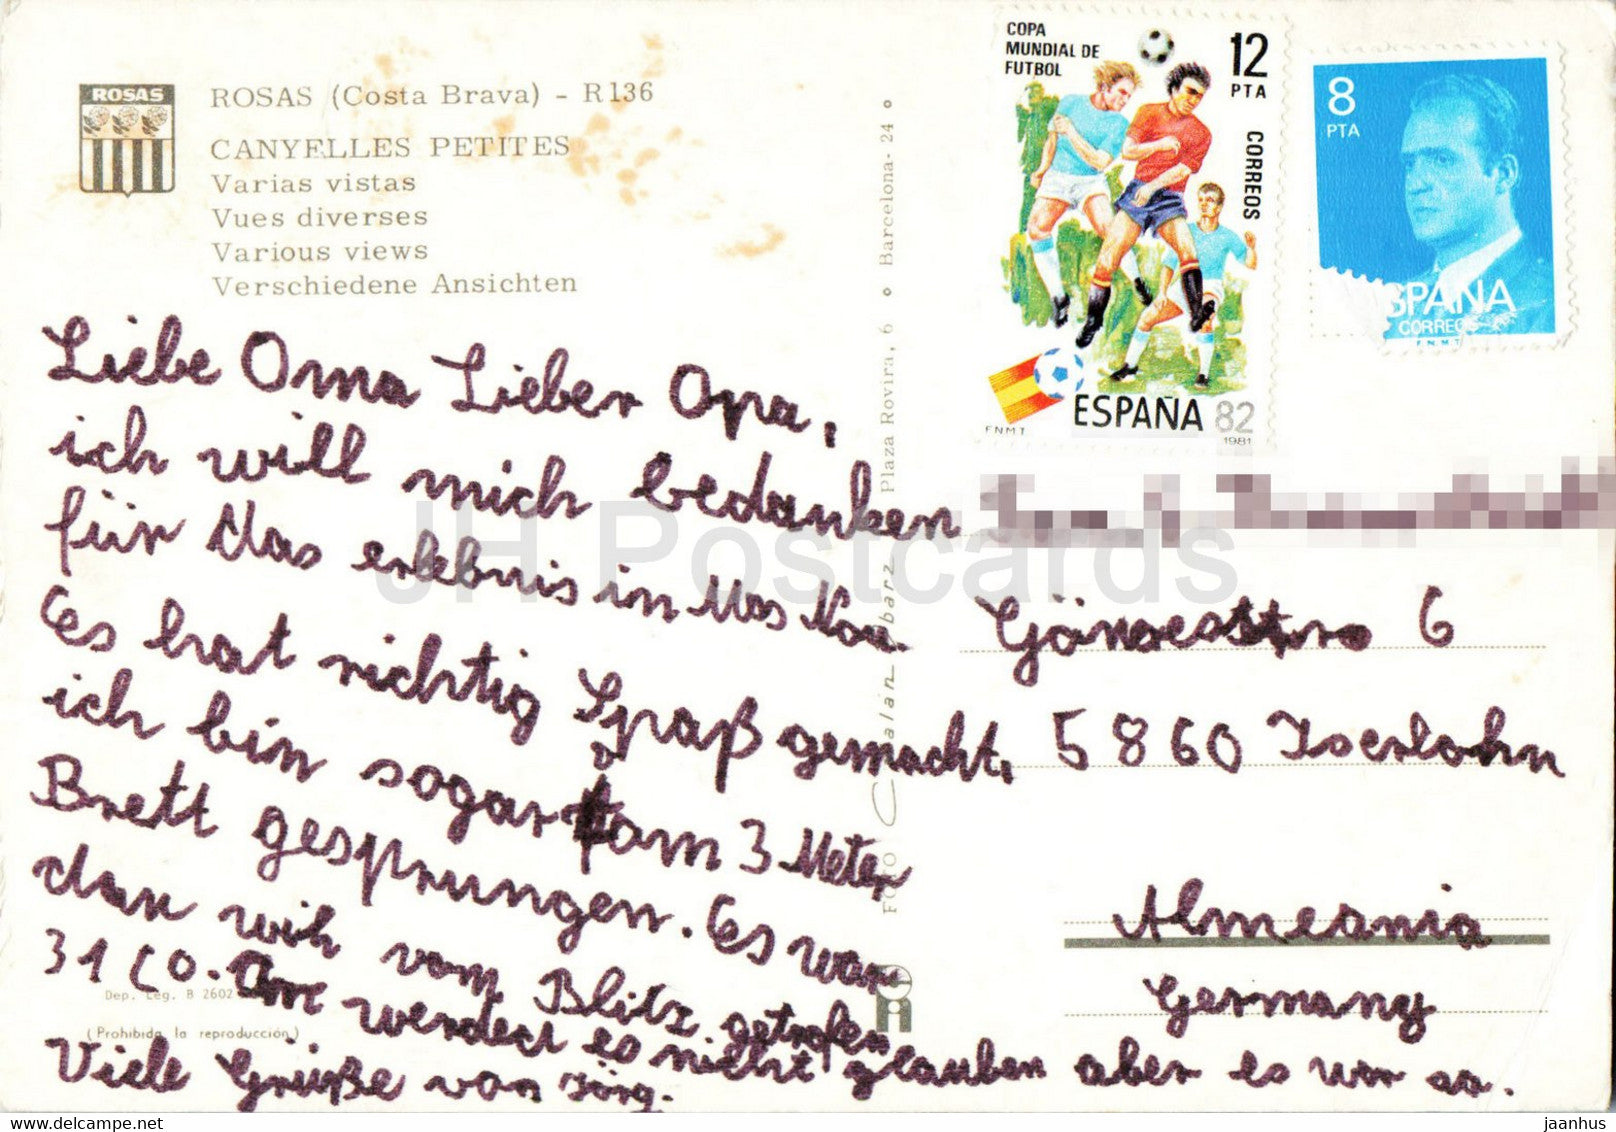 ROSAS
ROSAS (Costa Brava) - R136
CANYELLES PETITES
Varias vistas
Vues diverses
Various views
Verschiedene Ansichten
Liebe Oma Lieber Opa,
ich will mich bedanken
für das erlebnis in Mas Noa.
Es hat richtig Spaß gemacht.
ich bin sogar am 3 Meter
Brett gesprungen. Es war
31 C0.
dan wir vom Blitz getrofen
werdect es nicht glauben aber es war sa.
Viele Grüße von Jörg.
Dep. Leg. B 2602
(Prohibida la reproducción)
FOTO
Plaza Rovira, 6 ° Barcelona - 24 °
COPA
MUNDIAL DE
FUTBOL
12
PTA
CORREOS
ESPAÑA 82
F N M T
1981
8
PTA
SPAÑA
CORREOS
F.N.M.T.
6
5860 Iserlohn
Almeania
Germany
JH Postcards
jaanhus
delcampe.net